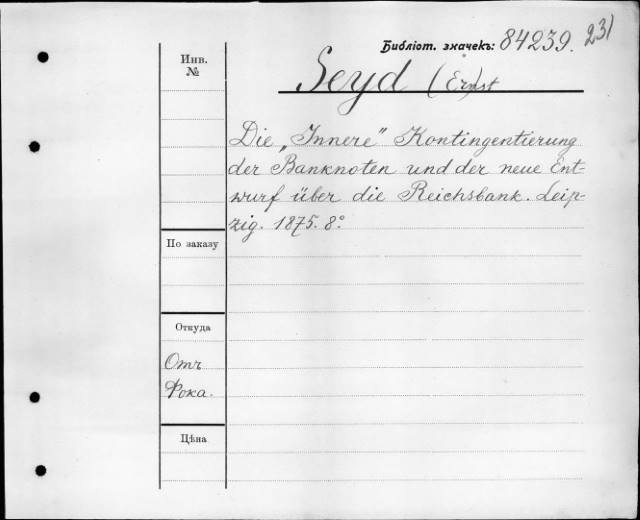 231
Библіот. значекъ: 84239.
Инв.
№
Seyd (Ernst
Die „Innere" Kontingentierung
der Banknoten und der neue Ent-
wurf über die Reichsbank. Leip-
zig. 1875. 8°.
По заказу
Откуда
Отъ
Фока.
Цѣна